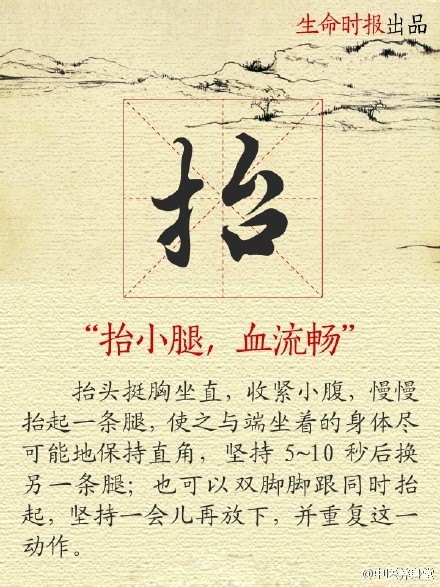 生命时报出品
抬
“抬小腿，血流畅”
抬头挺胸坐直，收紧小腹，慢慢
抬起一条腿，使之与端坐着的身体尽
可能地保持直角，坚持 5~10 秒后换
另一条腿；也可以双脚脚跟同时抬
起，坚持一会儿再放下，并重复这一
动作。